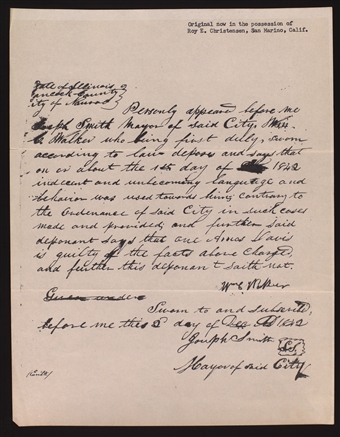 Original now in the possession of
Roy E. Christensen, San Marino, Calif.
State of Illinois
Hancock County
City of Nauvoo
Personly appeared before me
Joseph Smith Mayor of said City, Wm.
E. Walker who being first dilly, sworn
according to law deposes and says that
on or about the 1st day of 1842
indecent and unbecoming language and
behavior was used towards him contrary to
the Ordenance of said City in such cases
made and provided and further said
deponant says that one Ames Davis
is guilty of the facts above Charged
and further this deponant Saith not.
Wm E Walker
Given under
Sworn to and subscribed,
before me this 2 day of Dec AD 1842
Joseph Smith L.S.
Mayor of said City